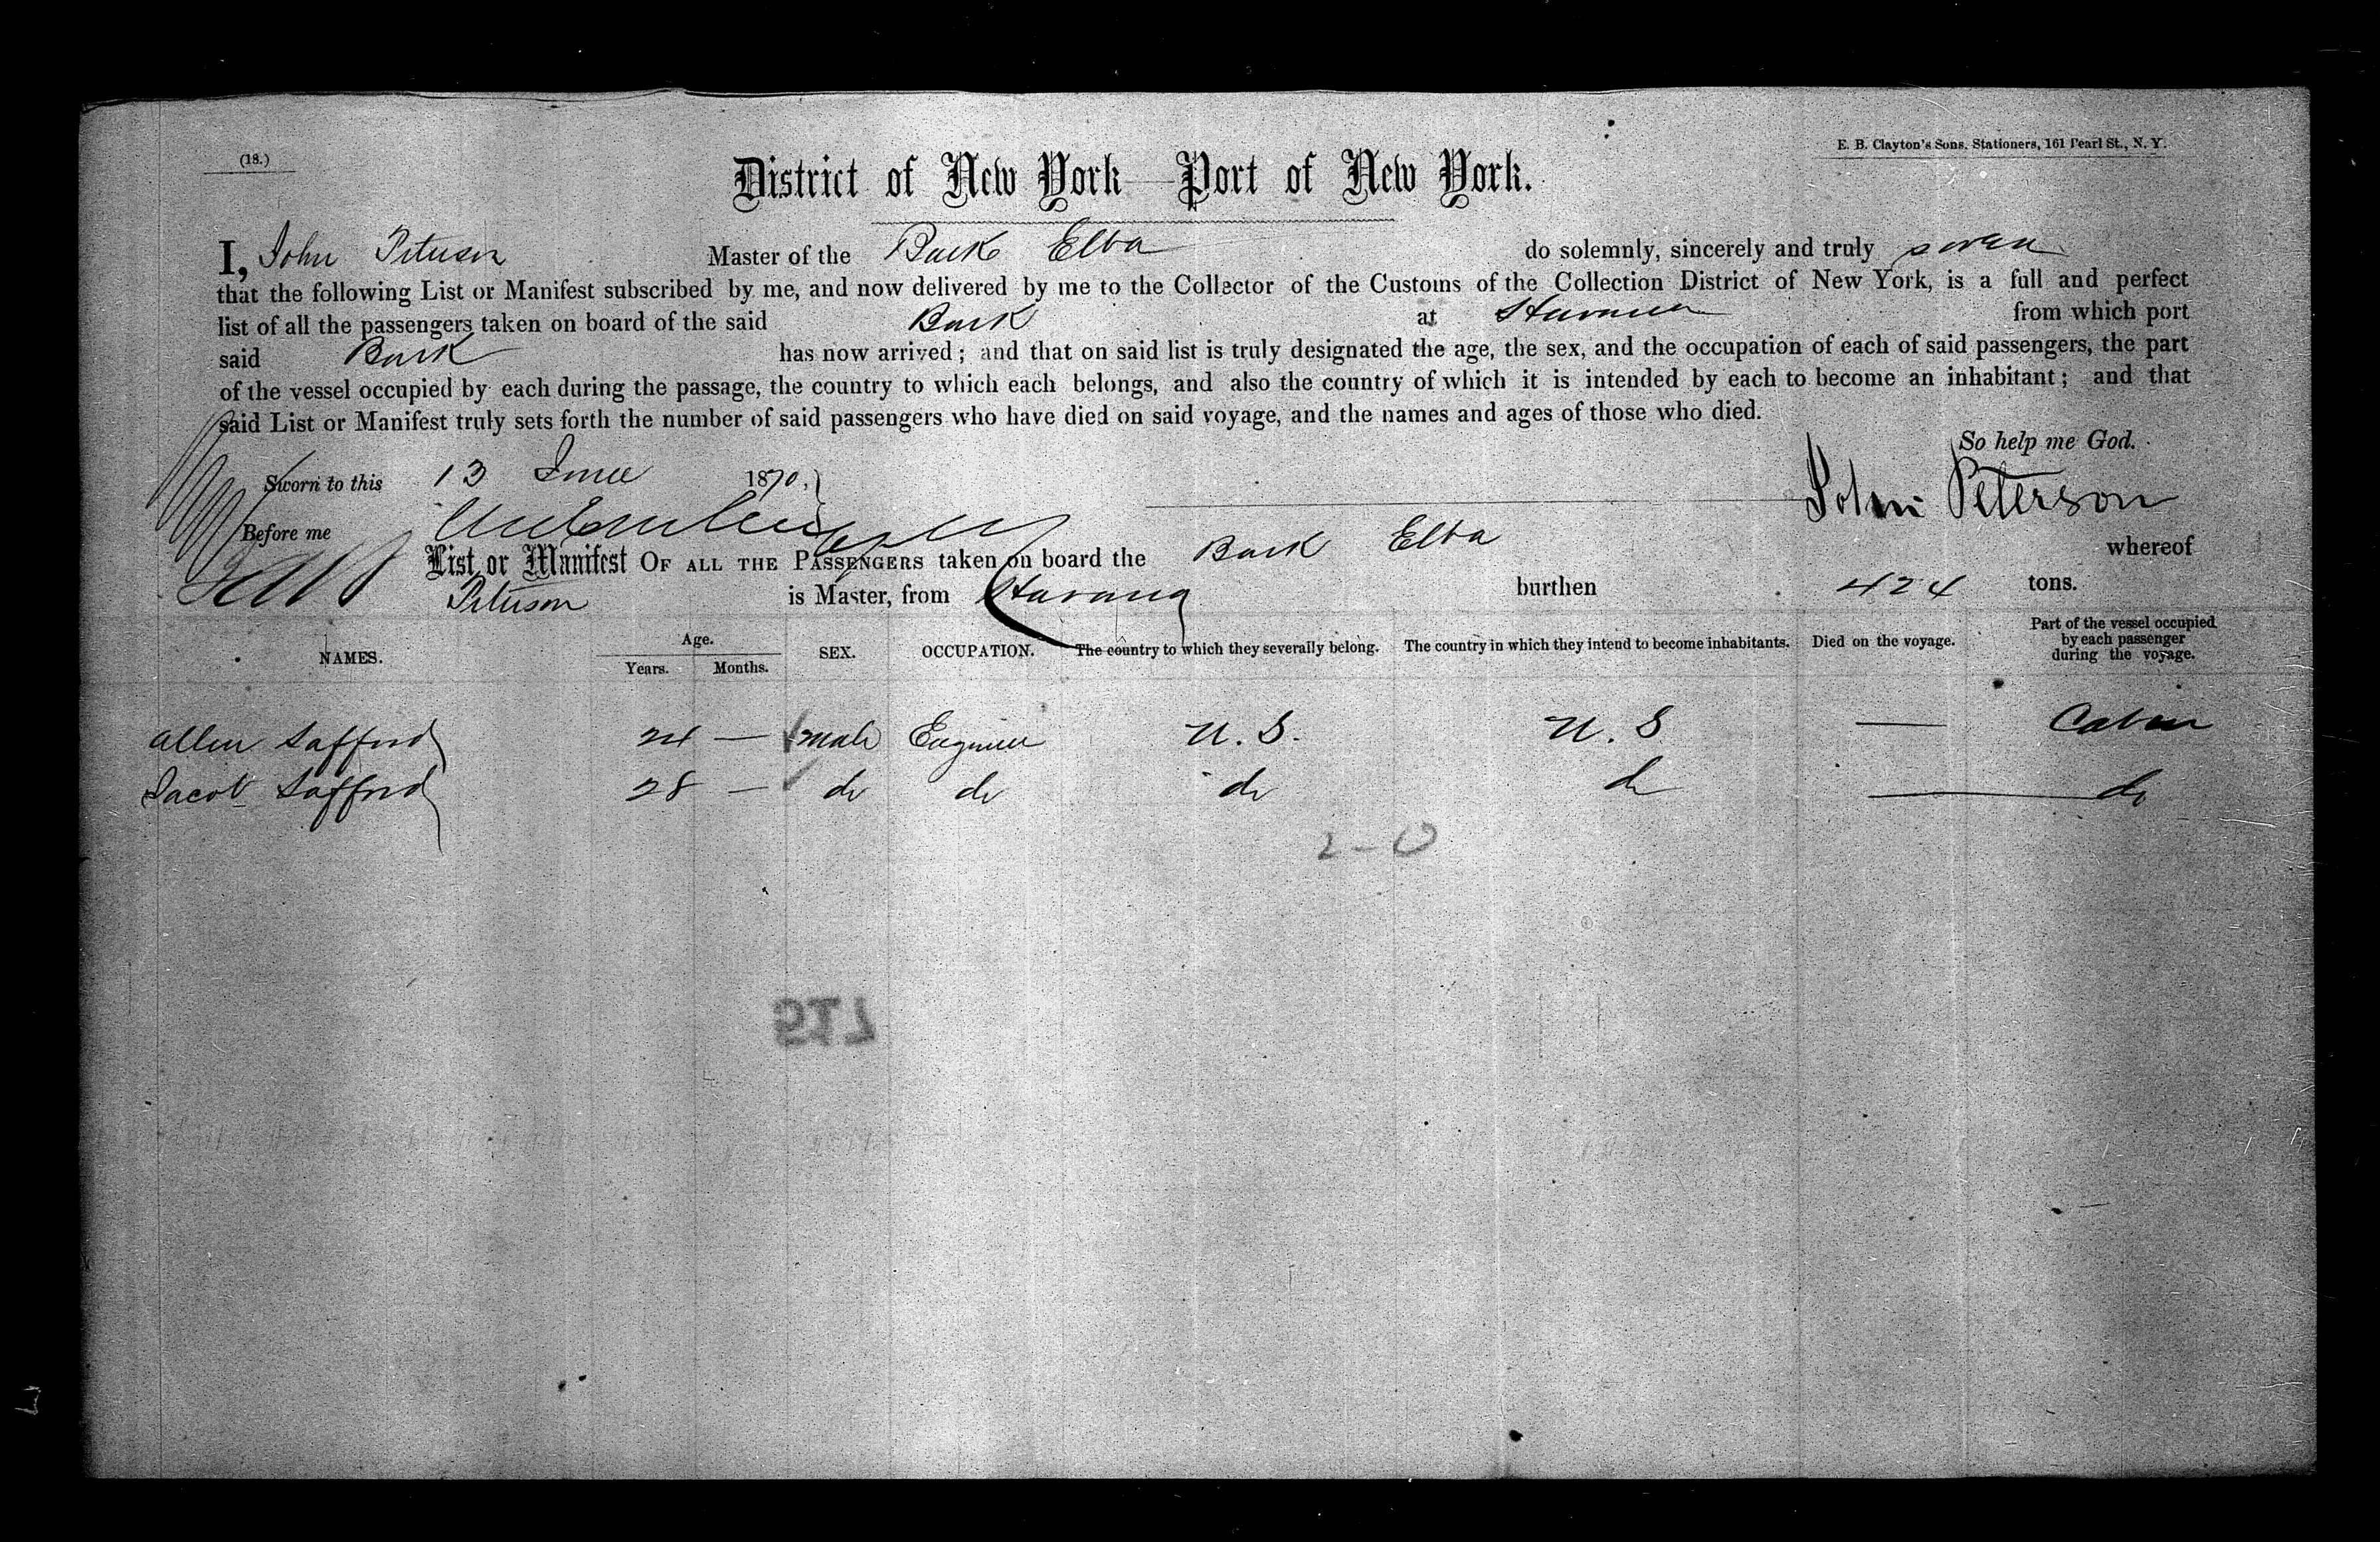 (18.)
E. B. Clayton's Sons, Stationers, 161 Pearl St., N. Y.
District of New York—Port of New York.
I, John Peterson Master of the Bark Elba do solemnly, sincerely and truly swear
that the following List or Manifest subscribed by me, and now delivered by me to the Collector of the Customs of the Collection District of New York, is a full and perfect
list of all the passengers taken on board of the said Bark at Havana from which port
said Bark has now arrived; and that on said list is truly designated the age, the sex, and the occupation of each of said passengers, the part
of the vessel occupied by each during the passage, the country to which each belongs, and also the country of which it is intended by each to become an inhabitant; and that
said List or Manifest truly sets forth the number of said passengers who have died on said voyage, and the names and ages of those who died.
So help me God.
Sworn to this 13 June 1870,
John Peterson
Before me
List or Manifest OF ALL THE PASSENGERS taken on board the Bark Elba whereof
Peterson is Master, from Havana burthen 424 tons.
NAMES. Age. Years. Months. SEX. OCCUPATION. The country to which they severally belong. The country in which they intend to become inhabitants. Died on the voyage. Part of the vessel occupied by each passenger during the voyage.
Allen Safford 24 — male Engineer U. S. U. S — Cabin
Jacob Safford 28 — do do do do — do
2-0